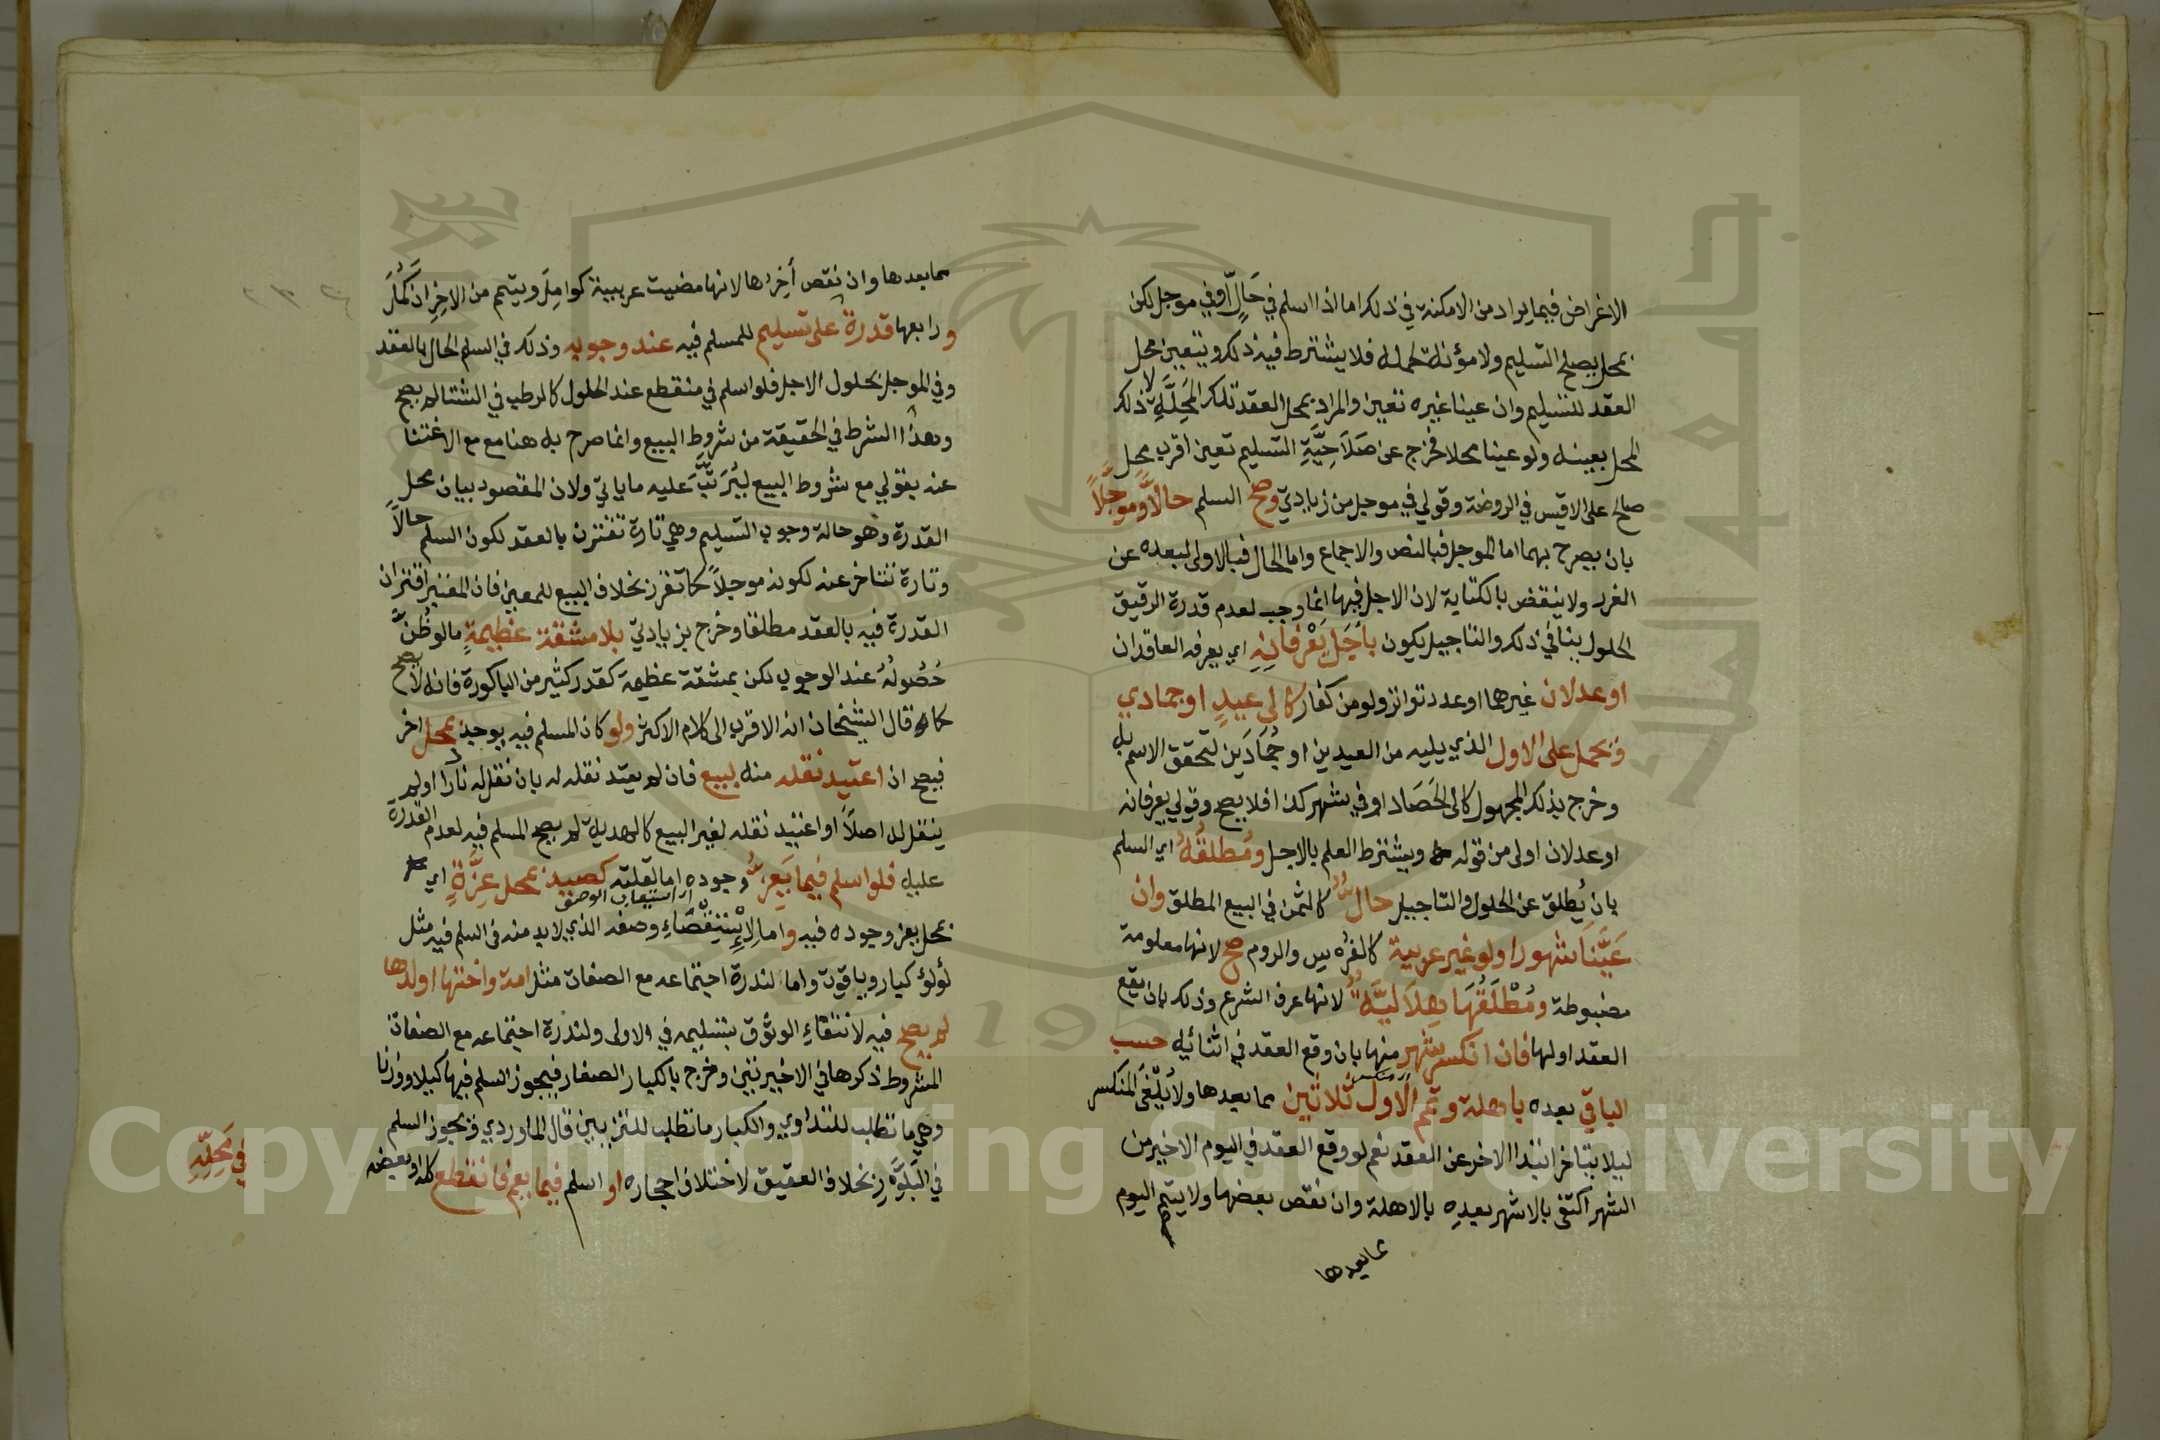 الاغراض فيما يراد من الامكنة في ذلك اما اذا اسلم في حالٍّ او في موجل لكن
بمحل يصلح التسليم ولا مؤنة لحمله فلا يشترط فيه ذلك ويتعين محل
العقد للتسليم وان عينا غيره تعين والمراد بمحل العقد تلك المَحِلَّةِ لا ذلك
المحل بعينه ولو عينا محلا فخرج عن صَلَاحِيَّةِ التسليم تعين اقرب محل
صالح على الاقيس في الروضة وقولي في موجل من زيادتي وصح السلم حالاًّ وموجَّلاً
بان يصرح بهما اما الموجل فبالنص والاجماع واما الحال فبالاولى لبعده عن
الغرر ولا ينقض بالكتابة لان الاجل فيها انما وجب لعدم قدرة الرقيق
الحلول ينافي ذلك والتاجيل يكون باَجَلٍ يَعْرفانِهِ اي يعرفه العاقدان
او عدلان غيرهما او عدد تواتر ولو من كفار كالى عيدٍ او جمادي
فيحمل على الاول الذي يليه من العيدين او جُمَادَين لتحقق الاسم به
وخرج بذلك المجهول كالى الحَصَاد او في شهر كذا فلا يصح وقولي يعرفانه
او عدلان اولى من قوله ويشترط العلم بالاجل ومُطلقُهُ اي السلم
بان يُطلق عن الحلول والتاجيل حالٌّ كالثمن في البيع المطلق وان
عَيَّنَا شهورا ولو غير عربية كالفرس والروم صح لانها معلومة
مضبوطة ومُطْلَقُهَا هِلَاليَّةٌ لانها عرف الشرع وذلك بان يقع
العقد اولها فان انكسر شهر منها بان وقع العقد في اثنائه حسب
الباقي بعده باهلة وتمم الاَوّل ثلاثين مما بعدها ولا يُلْغَى المنكسر
ليلا يتاخر ابتدا الاخر عن العقد نعم لو وقع العقد في اليوم الاخير من
الشهر اكتفى بالاشهر بعده بالاهلة وان نقص بعضها ولا يتمم اليوم
مما بعدها
مما بعدها وان نقص اَخِرُها لانها مضيت عربية كوامِلَ ويتمم من الاخِرِ ان كَمُلَ
ورابعها قدرة على تسليم للمسلم فيه عند وجوبه وذلك في السلم الحال بالعقد
وفي الموجل بحلول الاجل فلو اسلم في منقطع عند الحلول كالرطب في الشتا لم يصح
وهذا الشرط في الحقيقة من شروط البيع وانما صرح به هنا مع مع الاغتنا
عنه بقولي مع شروط البيع ليُرَتِّبَ عليه ما ياتي ولان المقصود بيان محل
القدرة وهو حالة وجوب التسليم وهي تارة تقترن بالعقد لكون السلم حالاًّ
وتارة تتاخر عنه لكونه موجلاً كما تقرر بخلاف البيع للمعين فان المعتبر اقتران
القدرة فيه بالعقد مطلقا وخرج بزيادتي بلا مشقة عظيمةٍ ما لو ظُنَّ
حُصُولُهُ عند الوجوب لكن بمشقة عظيمة كقدر كثير من الباكورة فانه لا يصح
كما قال الشيخان انه الاقرب الى كلام الاكثر ولو كان المسلم فيه يوجد بمحل اخر
فيصح ان اعتيد نقله منه لبيع فان لم يعتد نقله له بان نقل له نادرا او لم
ينقل له اصلاً او اعتيد نقله لغير البيع كالهدية لم يصح المسلم فيه لعدم القدرة
عليه فلو اسلم فيما يَعِزُّ وجوده اما لقلته كصيد بمحل عِزَّةٍ اي
اي استيفاء الوصف
بمحل يعز وجوده فيه واما لاِسْتِقْصَاءِ وصفه الذي لا بد منه في السلم فيه مثل
لؤلؤ كبار وياقوت واما لندرة اجتماعه مع الصفات مثل امة واختها او ولدها
لم يصح فيه لانتفاءِ الوثوق بتسليمه في الاولى ولندرة اجتماعه مع الصفات
المشروط ذكرها في الاخيرتين وخرج بالكبار الصغار فيجوز السلم فيها كيلا ووزنا
وهي ما تطلب للتداوي والكبار ما تطلب للتزيين قال الماوردي ويجوز السلم
في البَلَّورِ بخلاف العقيق لاختلاف احجاره او اسلم فيما يعم فانقطع كله او بعضه
في مَحِلِّهِ
Copyright © King Saud University